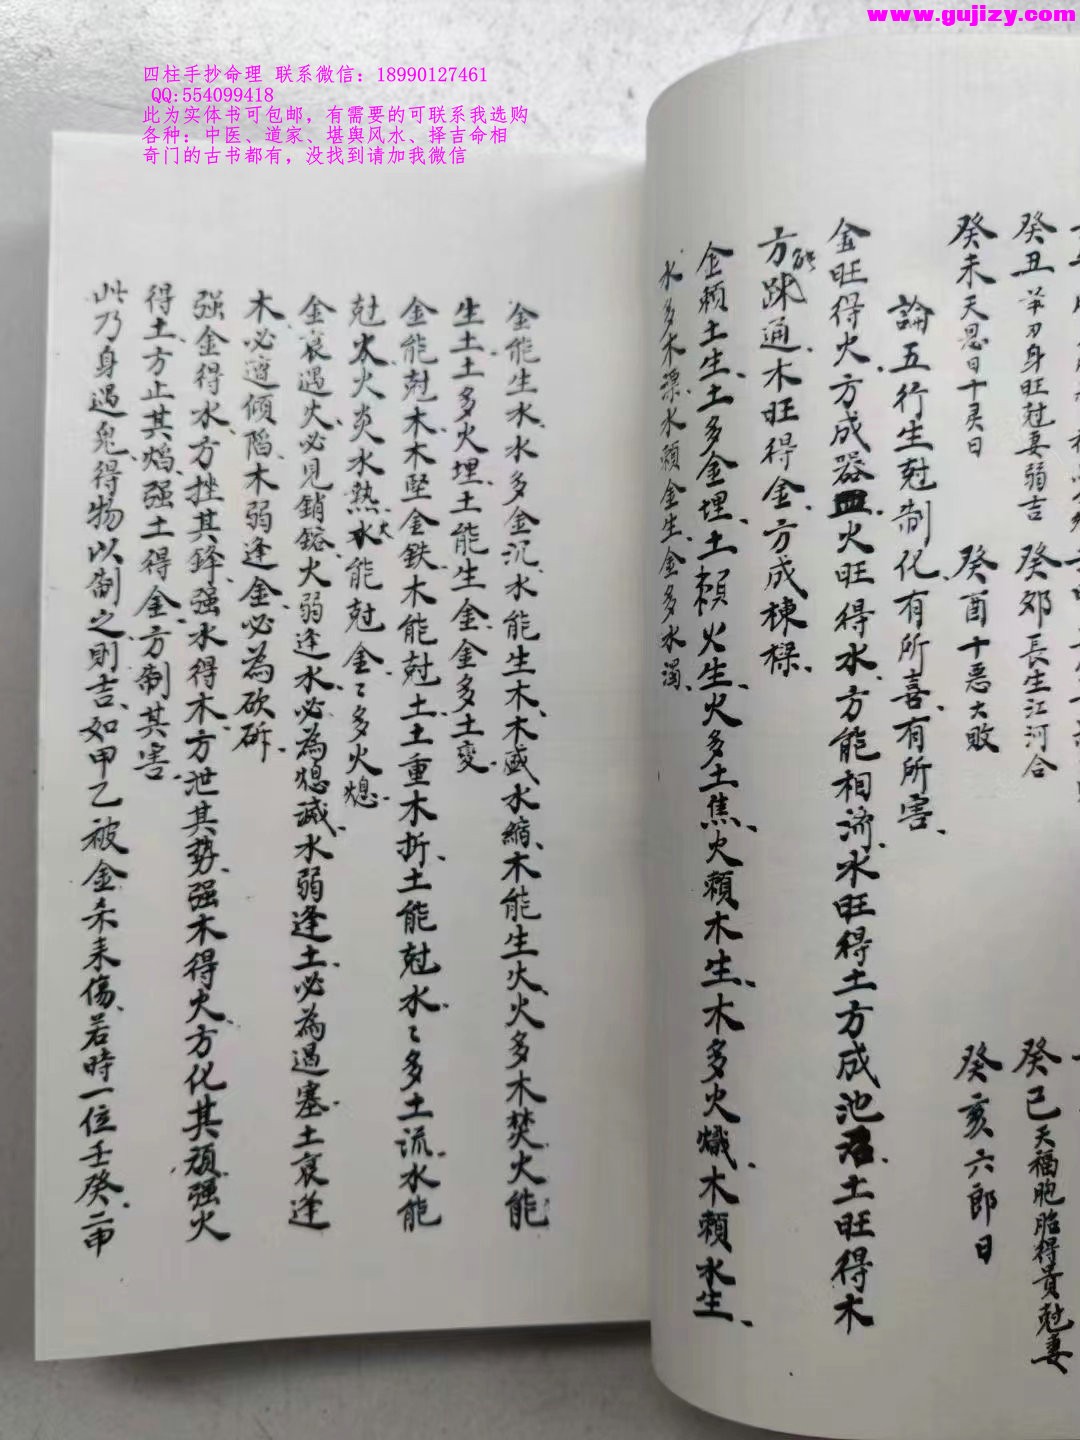 www.gujizy.com
四柱手抄命理 联系微信：18990127461
QQ:554099418
此为实体书可包邮，有需要的可联系我选购
各种：中医、道家、堪舆风水、择吉命相
奇门的古书都有，没找到请加我微信
癸丑 羊刃身旺尅妻弱吉 癸夘 長生江河合 癸巳 天福胞胎得貴尅妻
癸未 天恩日十灵日 癸酉 十恶大敗 癸亥 六郎日
論五行生尅制化、有所喜、有所害、
金旺得火、方成器皿、火旺得水、方能相济、水旺得土、方成池沼、土旺得木
方能疎通、木旺得金、方成棟樑、
金頼土生、土多金埋、土頼火生、火多土焦、火頼木生、木多火熾、木頼水生、
水多木漂、水頼金生、金多水濁、
金能生水、水多金沉、水能生木、木盛水縮、木能生火、火多木焚、火能
生土、土多火埋、土能生金、金多土变、
金能尅木、木堅金鉄、木能尅土、土重木折、土能尅水、〻多土流、水能
尅火、火炎水熱、火能尅金、〻多火熄、
金衰遇火、必見銷鎔、火弱逢水、必為熄滅、水弱逢土、必為過塞、土衰逢
木、必遭傾陷、木弱逢金、必為砍斫、
强金得水、方挫其鋒、强水得木、方泄其势、强木得火、方化其頑、强火
得土、方止其焰、强土得金、方制其害、
此乃身遇鬼、得物以制之、則吉、如甲乙被金杀来傷、若時一位壬癸、二申